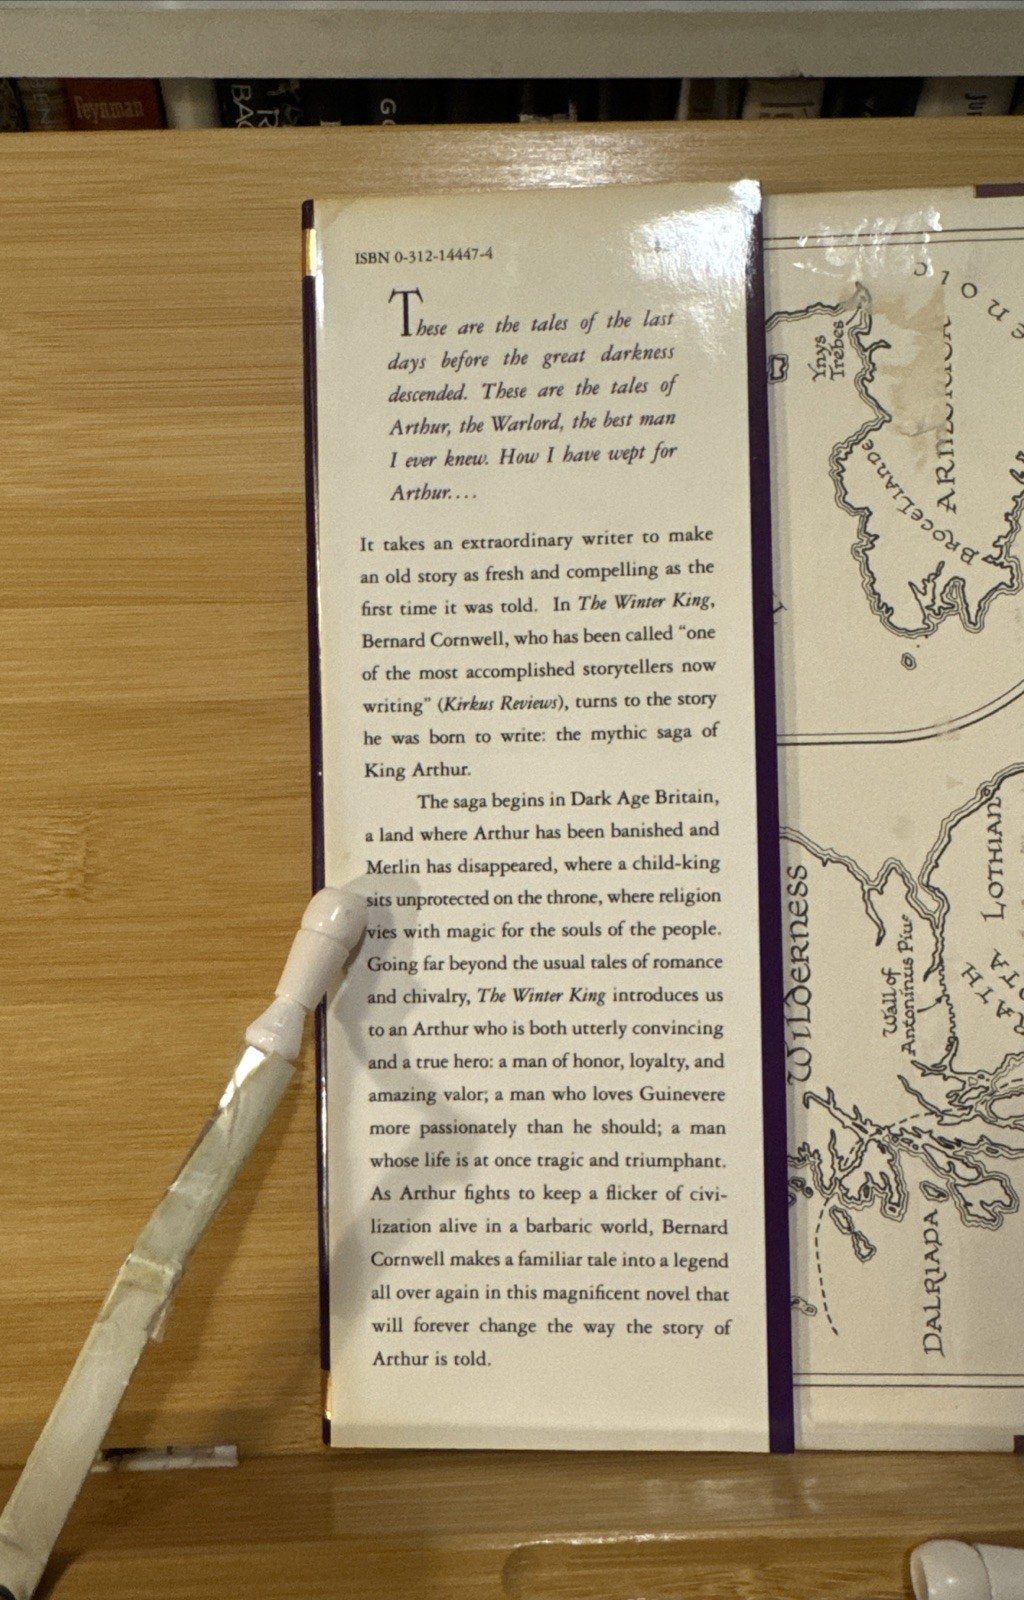 Feynman
ISBN 0-312-14447-4
These are the tales of the last
days before the great darkness
descended. These are the tales of
Arthur, the Warlord, the best man
I ever knew. How I have wept for
Arthur....
It takes an extraordinary writer to make
an old story as fresh and compelling as the
first time it was told. In The Winter King,
Bernard Cornwell, who has been called “one
of the most accomplished storytellers now
writing” (Kirkus Reviews), turns to the story
he was born to write: the mythic saga of
King Arthur.
The saga begins in Dark Age Britain,
a land where Arthur has been banished and
Merlin has disappeared, where a child-king
sits unprotected on the throne, where religion
vies with magic for the souls of the people.
Going far beyond the usual tales of romance
and chivalry, The Winter King introduces us
to an Arthur who is both utterly convincing
and a true hero: a man of honor, loyalty, and
amazing valor; a man who loves Guinevere
more passionately than he should; a man
whose life is at once tragic and triumphant.
As Arthur fights to keep a flicker of civi-
lization alive in a barbaric world, Bernard
Cornwell makes a familiar tale into a legend
all over again in this magnificent novel that
will forever change the way the story of
Arthur is told.
Ynys
Trebes
BROCELIANDE
ARMORICA
WILDERNESS
Wall of
Antoninus Pius
LOTHIAN
DALRIADA